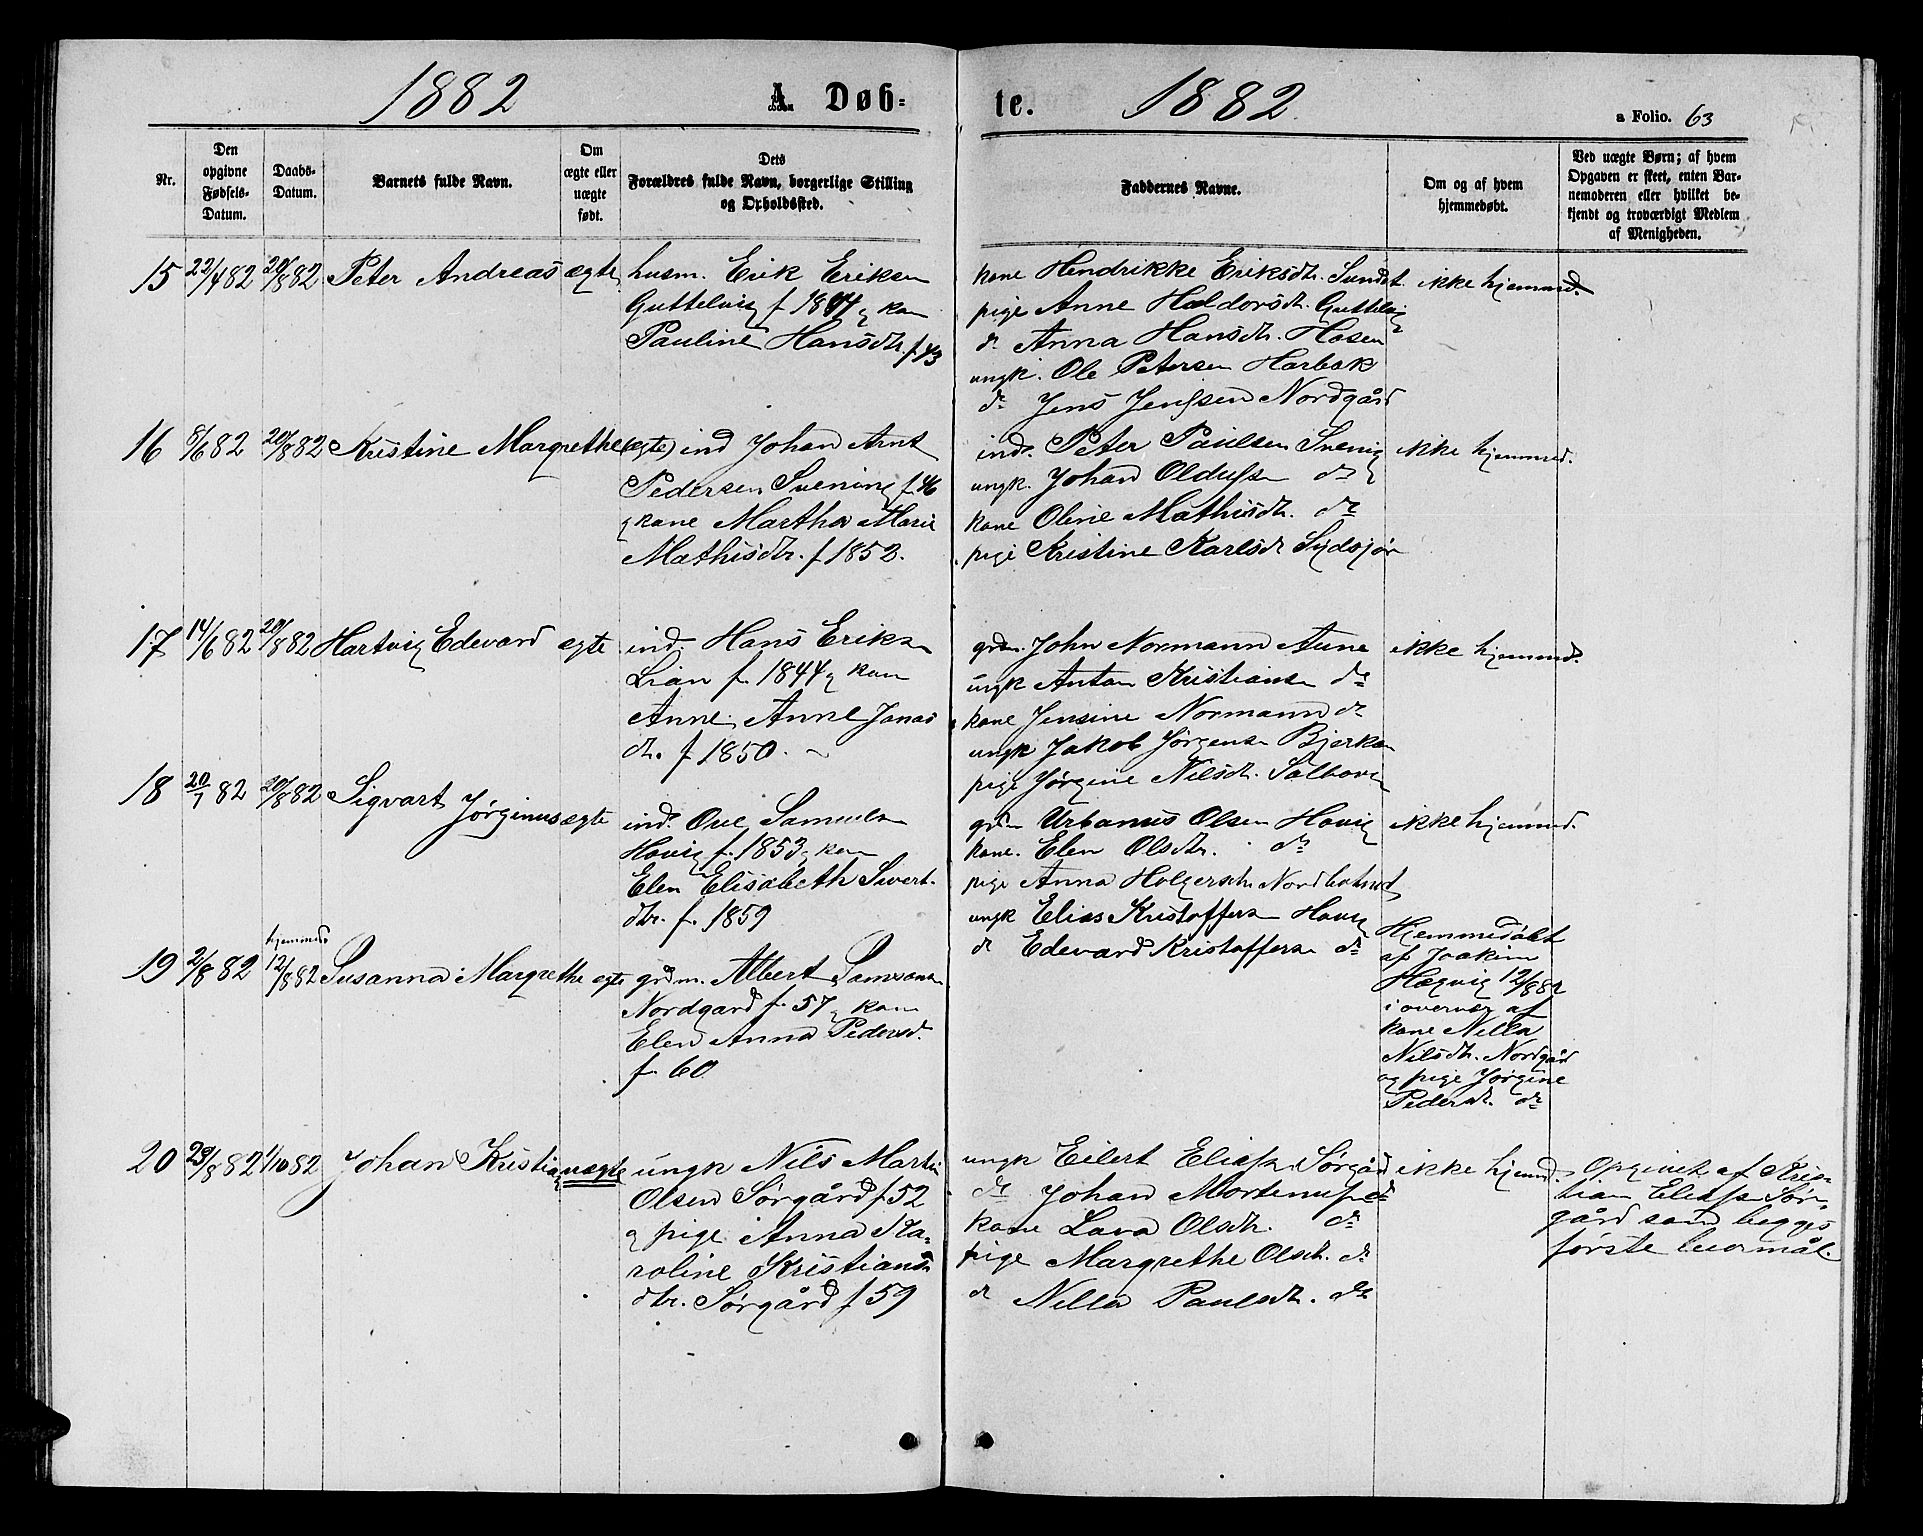 1882 A. Døb=
te. 1882.
a Folio. 63
Nr.
Den opgivne Fødsels-Datum.
Daabs-Datum.
Barnets fulde Navn.
Om ægte eller uægte født.
Dets Forældres fulde Navn, borgerlige Stilling og Opholdssted.
Faddernes Navne.
Om og af hvem hjemmedøbt.
Ved uægte Børn; af hvem Opgaven er skeet, enten Barnemoderen eller hvilket bekjendt og troværdigt Medlem af Menigheden.
15 22/4 82 20/8 82 Peter Andreas ægte
husm. Erik Eriksen
Guttelvig f 1844 og kone
Pauline Hansdtr. f 43
kone Hendrikke Eriksdtr. Sundet
pige Anne Haldorsdtr. Guttelvig
do Anna Hansdtr. Hosen
ungk. Ole Petersen Harbak
do Jens Jenssen Nordgård
ikke hjemmed.
16 8/6 82 20/8 82 Kristine Margrethe (ægte)
ind Johan Arnt
Pedersen Svening f. 46
og kone Martha Marie
Mathisdtr. f 1853.
ind. Peter Paulsen Svenig
ungk. Johan Oldussen do
kone Oline Mathisdtr. do
pige Kristine Karlsdtr Sydsjør
ikke hjemmed.
17 14/6 82 20/8 82 Hartvig Edevard ægte
ind. Hans Eriksen
Lian f. 1844 og kone
Anne Anne Jonas
dtr. f 1850.
grdm. John Normann Aune
ungk Anton Kristiansen do
kone Jensine Normann do
ungk Jakob Jørgensen Bjerkan
pige Jørgine Nilsdtr.
ikke hjemmed.
18 20/7 82 20/8 82 Sigvart Jørginus ægte
ind. Ove Samuelsen
Hovig f. 1853 og kone
Elen Elisabeth Sivert-
dtr. f. 1859
grdm Urbanus Olsen Hovig
kone. Elen Olsdtr. do
pige Anna Holgersdtr.
ungk Elias Kristoffersen Hovig
do Edevard Kristoffersen do
ikke hjemmed.
19 2/8 82 hjemmed 12/8 82 Susanna Margrethe ægte
grdm. Albert Samsonsen
Nordgård f. 57 og kone
Elen Anna Pedersd.
f. 60
Hjemmedøbt
af Joakim
Hægvig 12/8 82
i overvær af
kone Nella
Nilsdtr. Nordgård
og pige Jørgine
Pedersdtr. do
20 29/8 82 1/10 82 Johan Kristian uægte
ungk Nils Martin
Olsen Sørgård f 52
og pige Anna Ka-
roline Kristians
dtr. Sørgård f 59
ungk Eilert Eliassen Sørgård
do Johan Mortenussen do
kone Lava Olsdtr. do
pige Margrethe Olsdtr. do
do Nella Paulsdtr. do
ikke hjemmd.
Opgivet af Kris-
tian Eliassen Sør-
gård som begges
første leiermål.